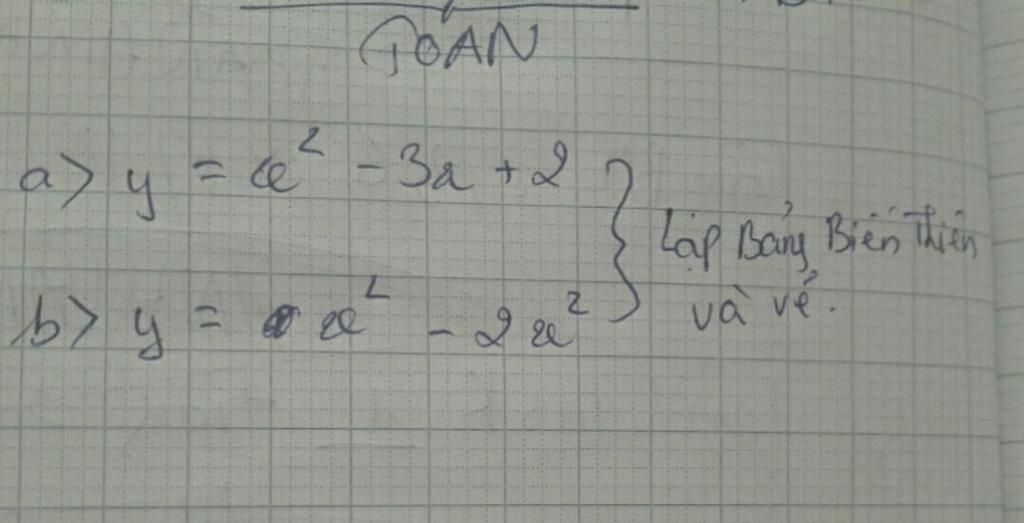 TOAN
a> y = x² - 3x + 2
b> y = x² - 2x²
} Lập Bảng Biến Thiên
và vẽ.